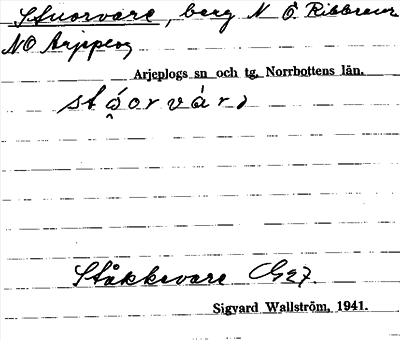 Stuorvare, berg N Ö Ribbraur
NO Arjeplog
Arjeplogs sn och tg, Norrbottens län.
stǻorvári
Ståkkevare Ge7.
Sigvard Wallström, 1941.